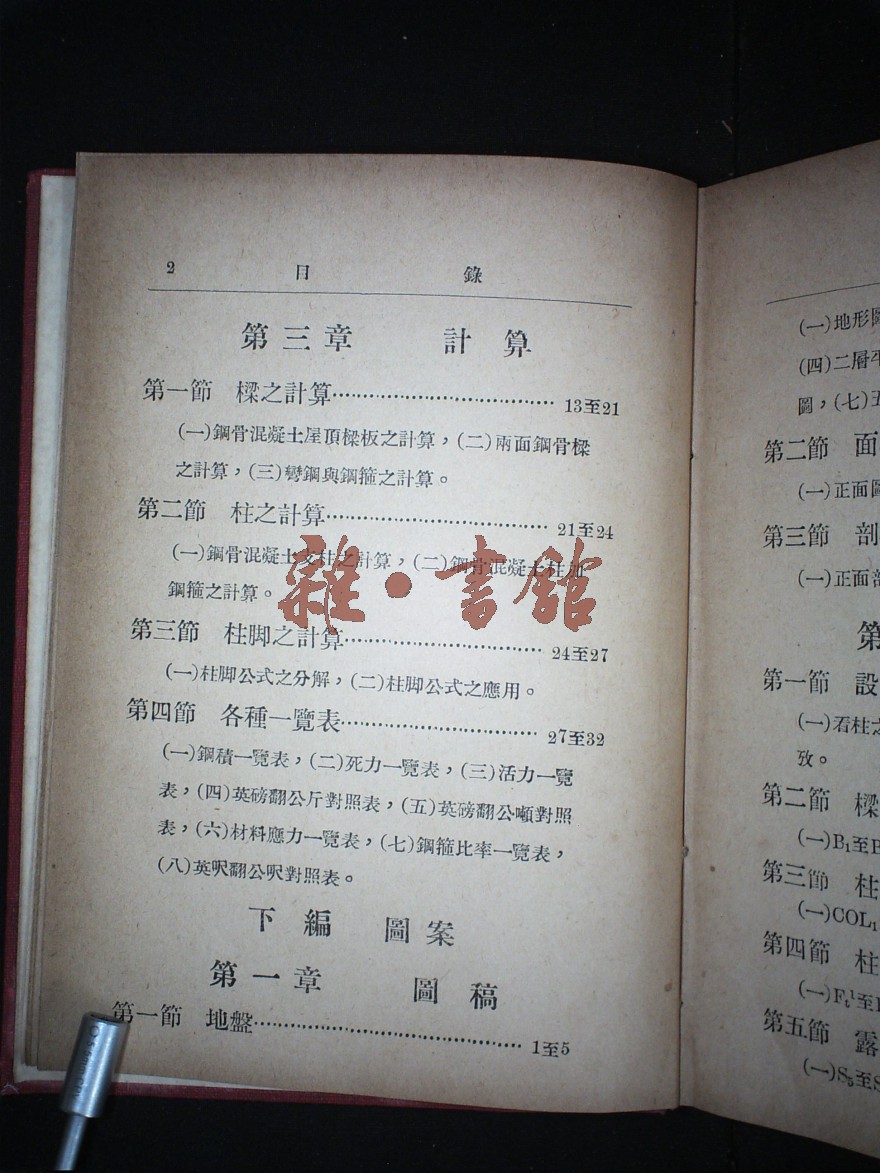 2 目錄
第三章 計算
第一節 樑之計算 13至21
(一)鋼骨混凝土屋頂樑板之計算,(二)兩面鋼骨樑
之計算,(三)彎鋼與鋼箍之計算。
第二節 柱之計算 21至24
(一)鋼骨混凝土支柱之計算,(二)鋼骨混凝土柱
鋼箍之計算。
第三節 柱脚之計算 24至27
(一)柱脚公式之分解,(二)柱脚公式之應用。
第四節 各種一覽表 27至32
(一)鋼積一覽表,(二)死力一覽表,(三)活力一覽
表,(四)英磅翻公斤對照表,(五)英磅翻公噸對照
表,(六)材料應力一覽表,(七)鋼箍比率一覽表,
(八)英呎翻公呎對照表。
下編 圖案
第一章 圖稿
第一節 地盤 1至5
雜·書館
(一)地形圖
(四)二層平
圖,(七)五
第二節 面
(一)正面圖
第三節 剖
(一)正面剖
第
第一節 設
(一)看柱之
攷。
第二節 樑
(一)B₁至B
第三節 柱
(一)COL₁
第四節 柱
第五節 露
(一)S₅至S